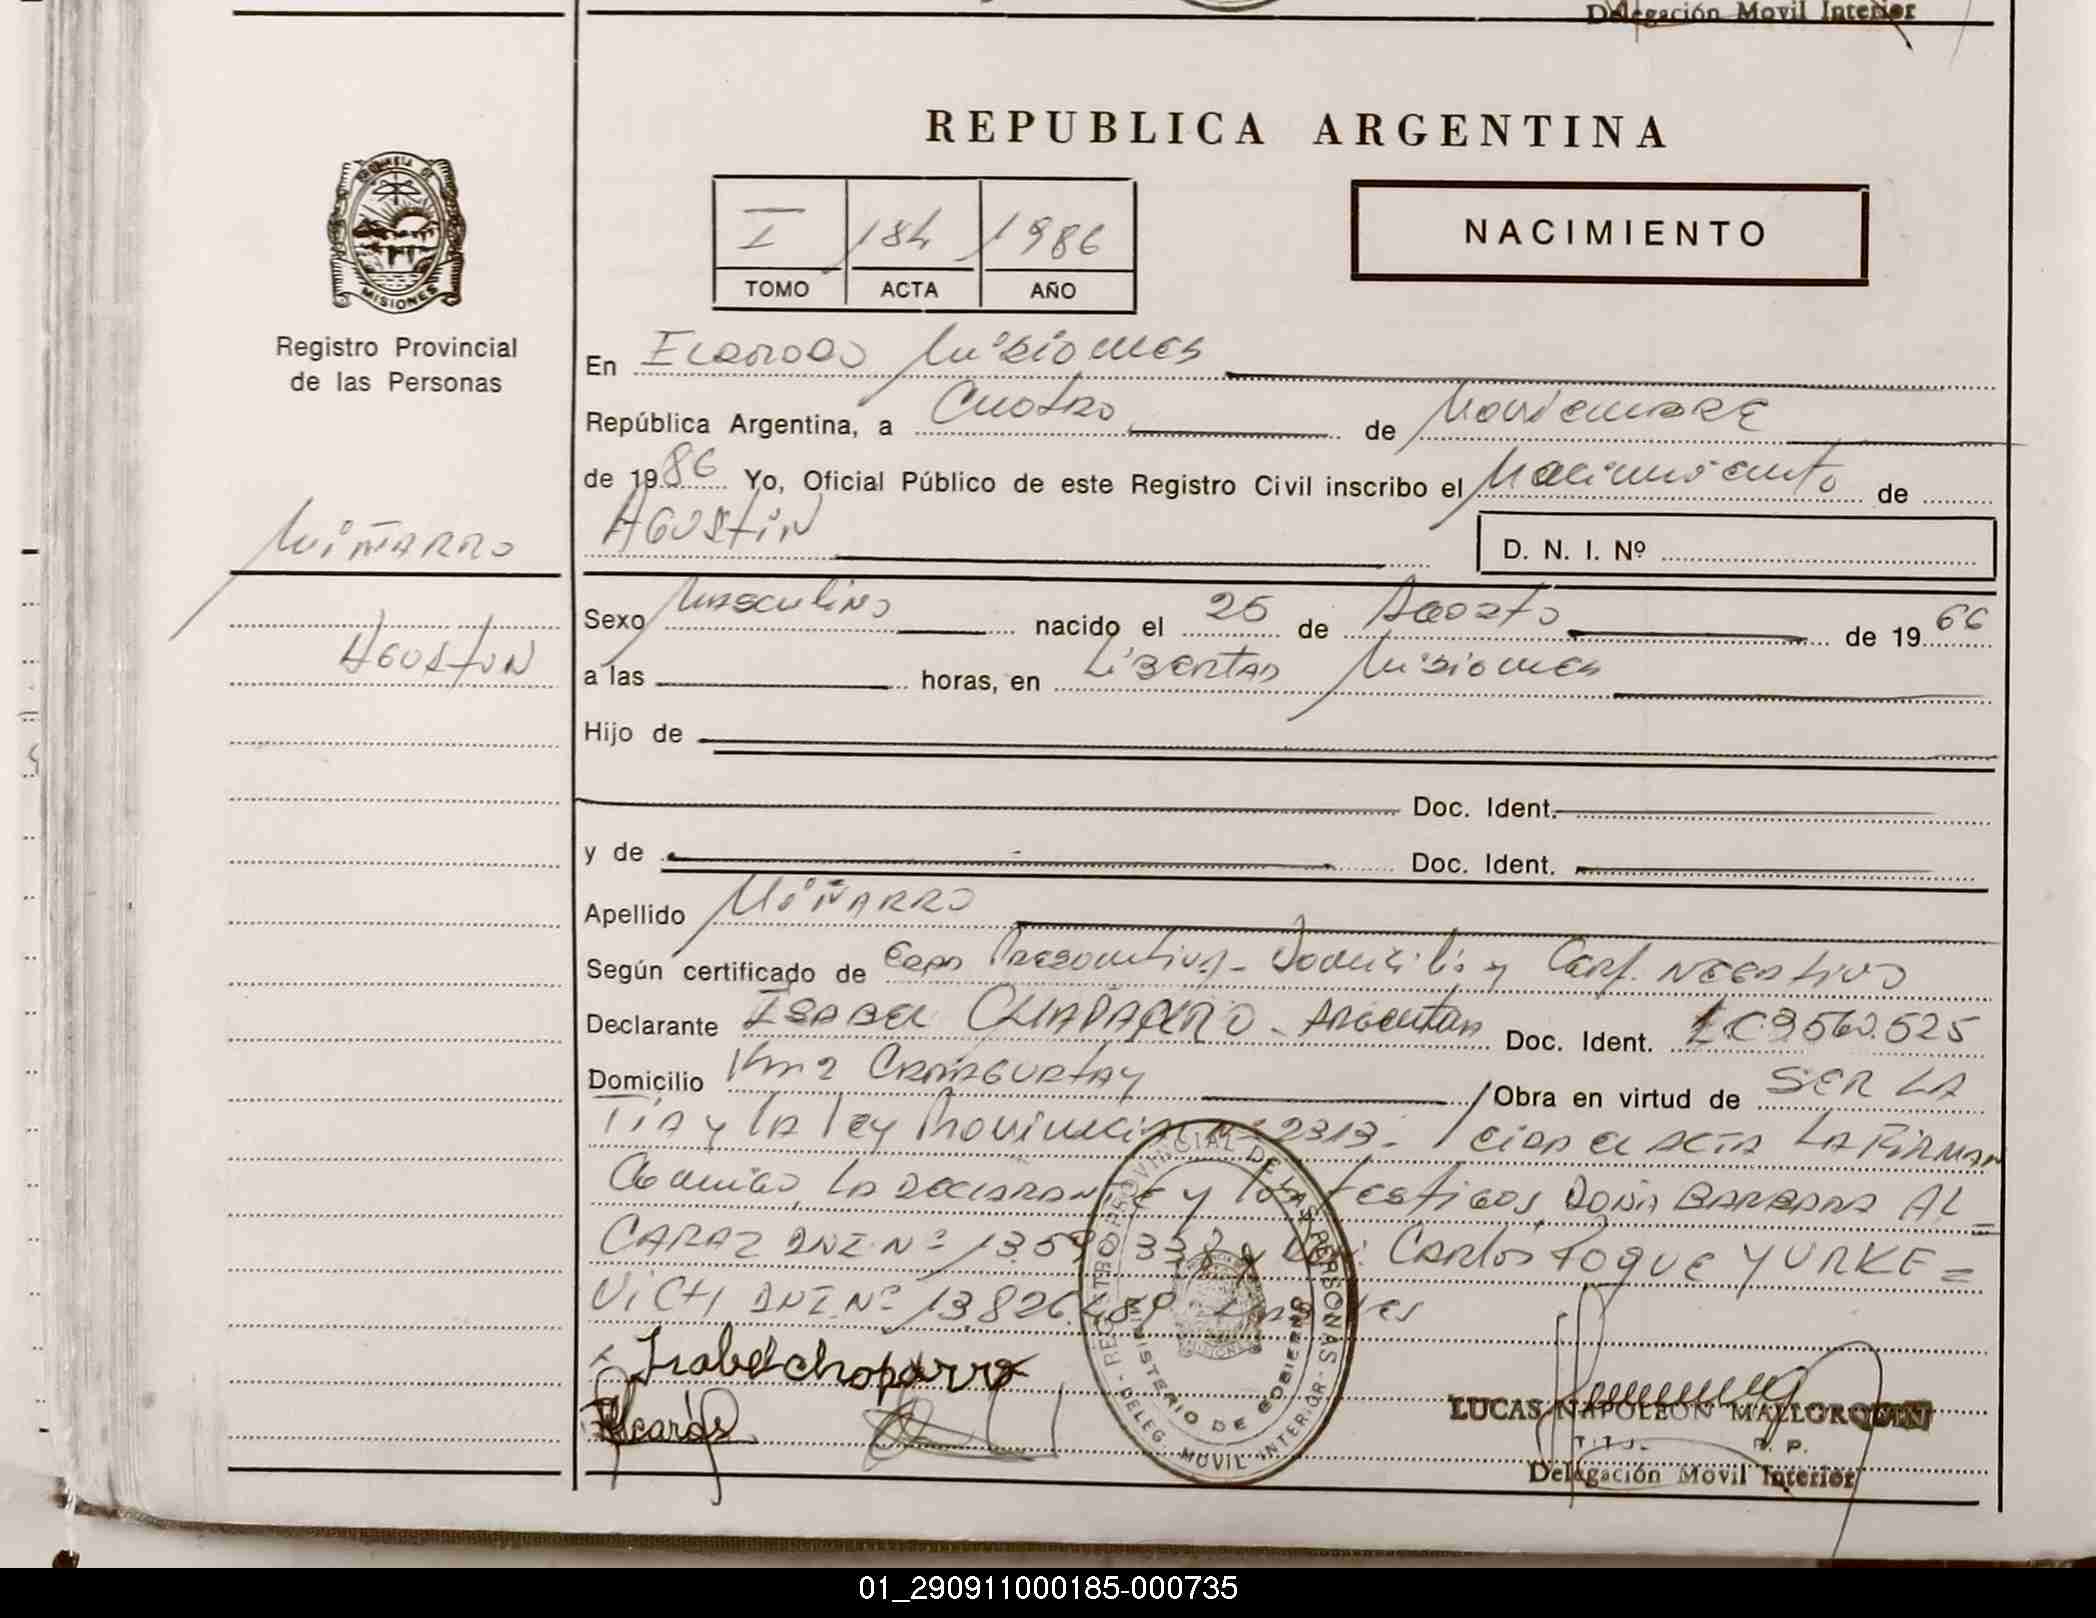 Delegación Movil Interior
REPUBLICA ARGENTINA
I 184 1986
TOMO ACTA AÑO
NACIMIENTO
PROVINCIA DE
MISIONES
Registro Provincial
de las Personas
En Eldorado Misiones
República Argentina, a Cuatro de Noviembre
de 1986 Yo, Oficial Público de este Registro Civil inscribo el Nacimiento de
AGUSTIN
D. N. I. Nº
MIÑARRO
AGUSTIN
Sexo Masculino nacido el 26 de Agosto de 1966
a las horas, en Libertad Misiones
Hijo de
Doc. Ident.
y de Doc. Ident.
Apellido MIÑARRO
Según certificado de Edad Presuntiva - Domicilio y Cert. Negativo
Declarante ISABEL CHAPARRO - Argentina Doc. Ident. LC 9.560.525
Domicilio Km 2 CARAGUATAY Obra en virtud de SER LA
TIA y la ley Provincial Nº 2313 - Leida el ACTA LA FIRMAN
Conmigo, la DECLARANTE y los testigos, DOÑA BARBARA AL=
CARAZ DNI. Nº y Don: Carlos Roque YURKE=
VICH DNI. Nº 13.826.
Isabel chaparro
Alcaráz
REGISTRO PROVINCIAL DE LAS PERSONAS
MINISTERIO DE GOBIERNO
DELEG. MOVIL INTERIOR
LUCAS NAPOLEON MALLORQUIN
Delegación Movil Interior
01_290911000185-000735